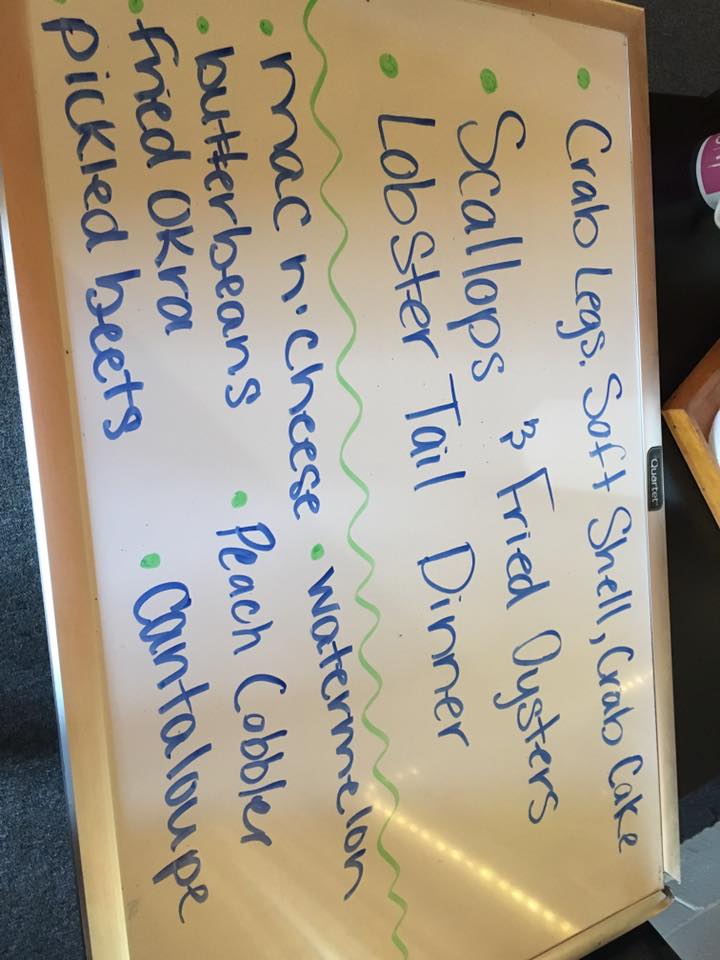 Quartet
• Crab Legs, Soft Shell, Crab Cake
• Scallops & Fried Oysters
• Lobster Tail Dinner
• mac n' cheese • watermelon
• butterbeans • Peach Cobbler
• fried OKra • Cantaloupe
• pickled beets